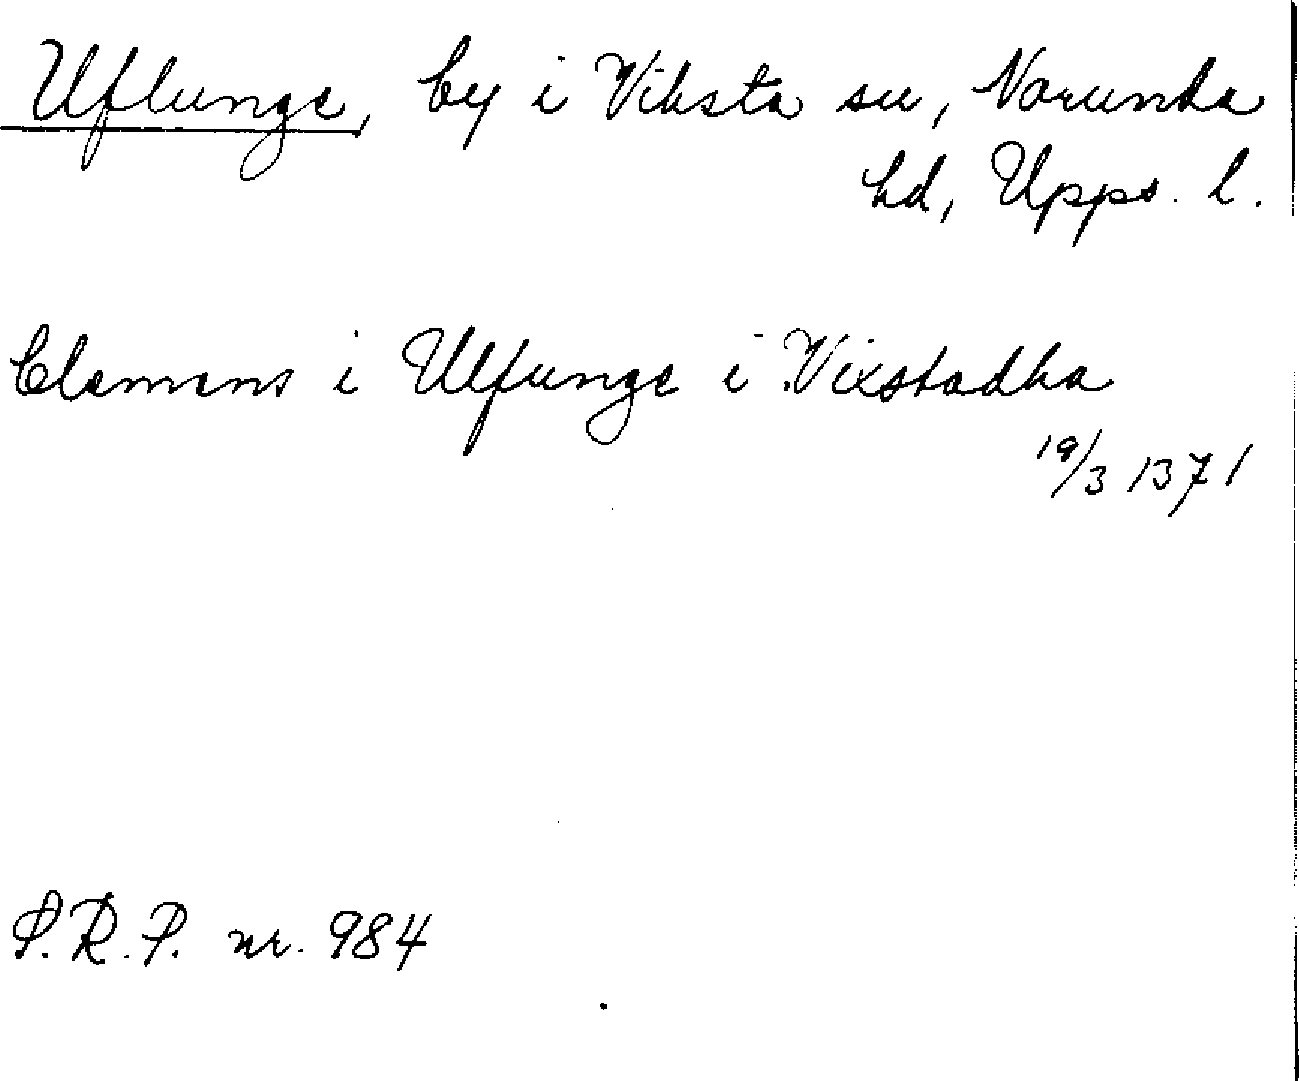 Uflunge, by i Viksta sn, Norunda
hd, Upps. l.
Clemens i Ulfunge i Vixstadha
19/3 1371
S.R.P. nr. 984